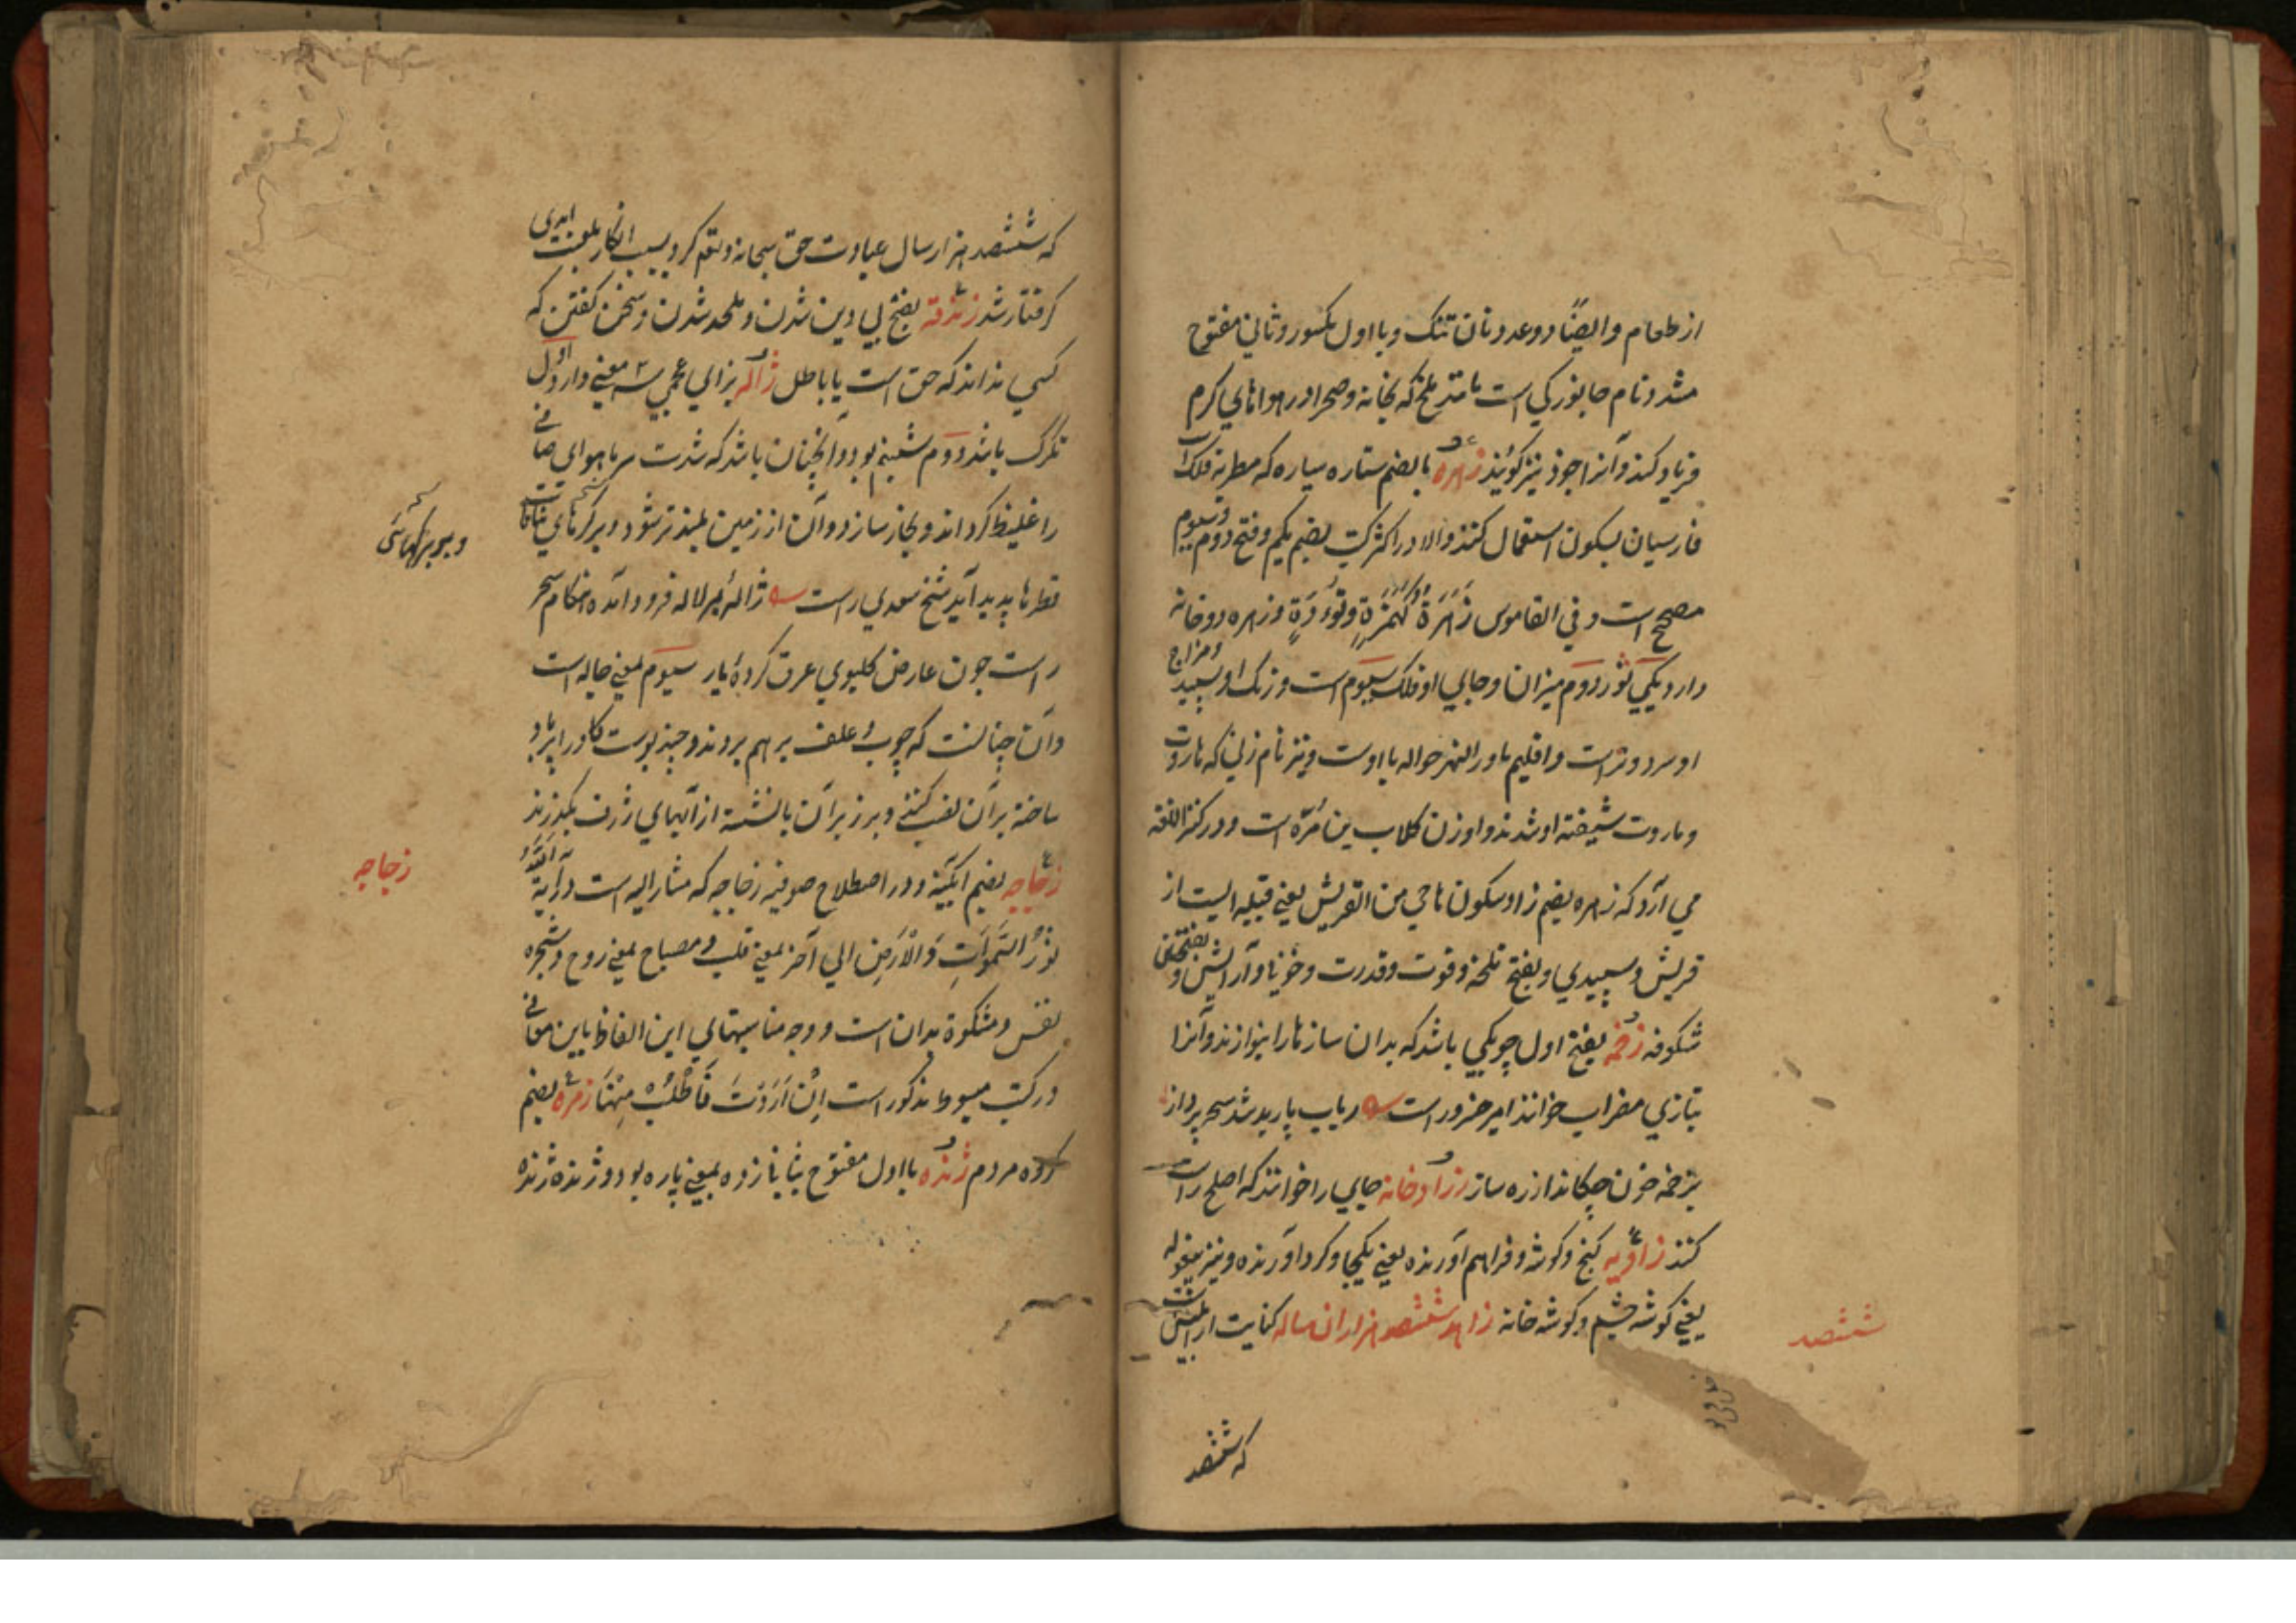 از طعام و ایضًا دو عدد نان تنک و با اول مکسور و ثانی مفتوح
مشدد نام جانوریکی است مانند ملخ که بخانه و صحرا در هواهای گرم
فریاد کند و آنرا جزد نیز گویند زهره بالضم ستاره سیاره که مطربه فلک است
فارسیان بسکون استعمال کنند والا در اکثر کتب بضم یکم و فتح دوم و سیوم
مصحح است و فی القاموس زُهَرَة کهُمَزَةٍ و تُوَدَةٍ و زهره دو خانه
دارد یکی ثور دوم میزان و جای او فلک سیوم است و رنگ او سپید و مزاج
او سرد و تر است و اقلیم ماورالنهر حواله باوست و نیز نام زنی که هاروت
و ماروت شیفته او شدند و او زن کلاب بن مُرّه است و در کنز اللغة
می آرد که زهره بضم زا و سکون ها حی من القریش یعنی قبیله ایست از
قریش و سپیدی و بفتح تلخه و قوت و قدرت و خوبی و آرایش و بفتحتین
شکوفه زخمه بفتح اول چوبکی باشد که بدان سازها را بنوازند و آنرا
بتازی مضراب خوانند امیر خسرو راست رباب باربد شد سحر پرداز
بزخمه خون چکاند از ره ساز زرادخانه جای را خوانند که اصلح راست
کنند زاویه کنج و گوشه و فراهم آورنده یعنی یکجا و گرد آورنده و نیز بیغوله
یعنی گوشه چشم و گوشه خانه زاهد ششصد هزاران ساله کنایت از ابلیس است
ششصد
که ششصد
که ششصد هزار سال عبادت حق سبحانه و تعم کرد بسبب انکار بلعنت ابدی
گرفتار شد زندقه بفتح بی دین شدن و ملحد شدن و سخن گفتن که
کسی نداند که حق است یا باطل ژاله بزای عجمی سه معنی دارد اول
تگرگ باشد دوم شبنم بود و آنچنان باشد که شدت سرما هوای صافی
را غلیظ گرداند و بخار سازد و آن از زمین بلند تر شود و بر گرمای نباتات
و بر برگهای
قطرها پدید آید شیخ سعدی راست ژاله بر لاله فرود آمده هنگام سحر
راست چون عارض گلبوی عرق کرده یار سیوم بمعنی جاله است
و آن چنانست که چوب و علف بر هم بروند و چند پوست گاو را پر باد
ساخته بر آن نصب کنند و بر زبر آن بانشسته از آبهای ژرف بگذرند
زجاجه بضم آبگینه و در اصطلاح صوفیه زجاجه که مشارالیه است در آیة اَللّٰهُ
زجاجه
نُورُ السَّمٰوَاتِ وَالْاَرْضِ الی آخر بمعنی قلب و مصباح بمعنی روح و شجره
نفس و مشکوة بدان است و وجه مناسبتهای این الفاظ باین معانی
در کتب مبسوط مذکور است اِنْ اَرَدْتَ فَاطْلُبْ مِنْهَا زمره بضم
گروه مردم ژنده با اول مفتوح بثانی زده بمعنی پاره بود و ژنده ژنده